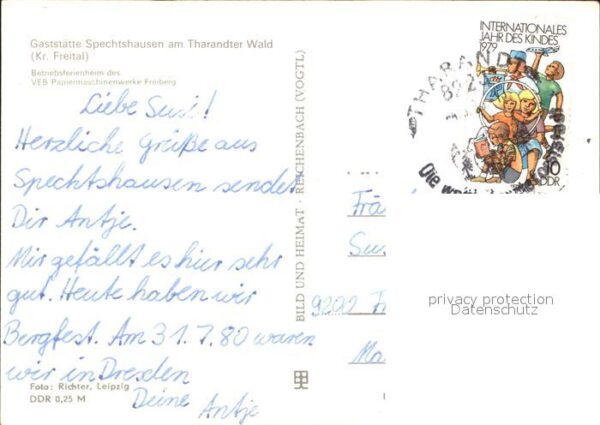 Gaststätte Spechtshausen am Tharandter Wald
(Kr. Freital)
Betriebsferienheim des
VEB Papiermaschinenwerke Freiberg
Liebe Susi!
Herzliche Grüße aus
Spechtshausen sendet
Dir Antje.
Mir gefällt es hier sehr
gut. Heute haben wir
Bergfest. Am 31.7.80 waren
wir in Dresden
Deine Antje
Foto: Richter, Leipzig
DDR 0,25 M
BILD UND HEIMAT · REICHENBACH (VOGTL)
INTERNATIONALES
JAHR DES KINDES
1979
10
DDR
THARAND
Die
Frä
Sus
9202 Fr
Ma
privacy protection
Datenschutz